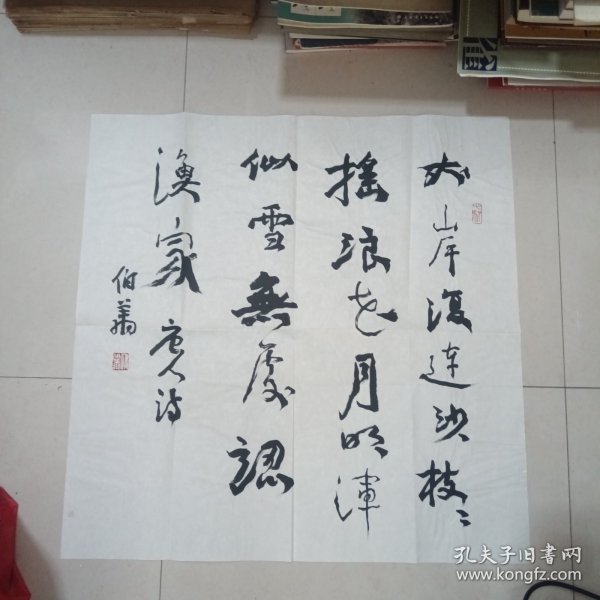 夾岸復連沙枝〻
搖浪花月明渾
似雪無處認
漁家 唐人詩
伯
孔夫子旧书网
www.kongfz.com